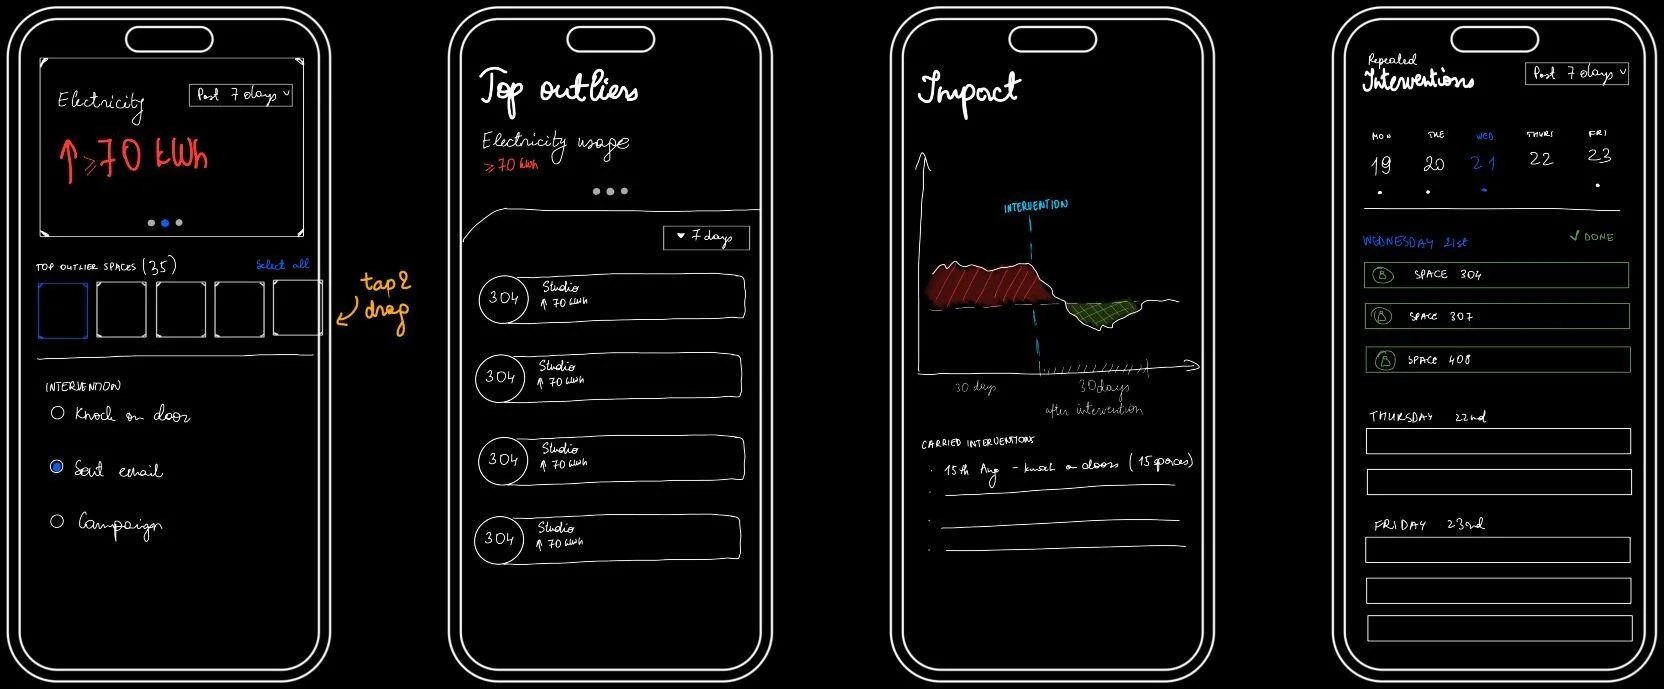 Electricity
Past 7 days
↑ ≥70 kWh
TOP OUTLIER SPACES (35)
Select all
tap &
drag
INTERVENTION
Knock on door
Sent email
Campaign
Top outliers
Electricity usage
≥70 kWh
7 days
304
Studio
↑ 70 kWh
304
Studio
↑ 70 kWh
304
Studio
↑ 70 kWh
304
Studio
↑ 70 kWh
Impact
INTERVENTION
30 days
30 days
after intervention
CARRIED INTERVENTIONS
15th Aug - knock on doors (15 spaces)
Repeated
Interventions
Past 7 days
MON TUE WED THURS FRI
19 20 21 22 23
WEDNESDAY 21st
✓ DONE
SPACE 304
SPACE 307
SPACE 408
THURSDAY 22nd
FRIDAY 23nd